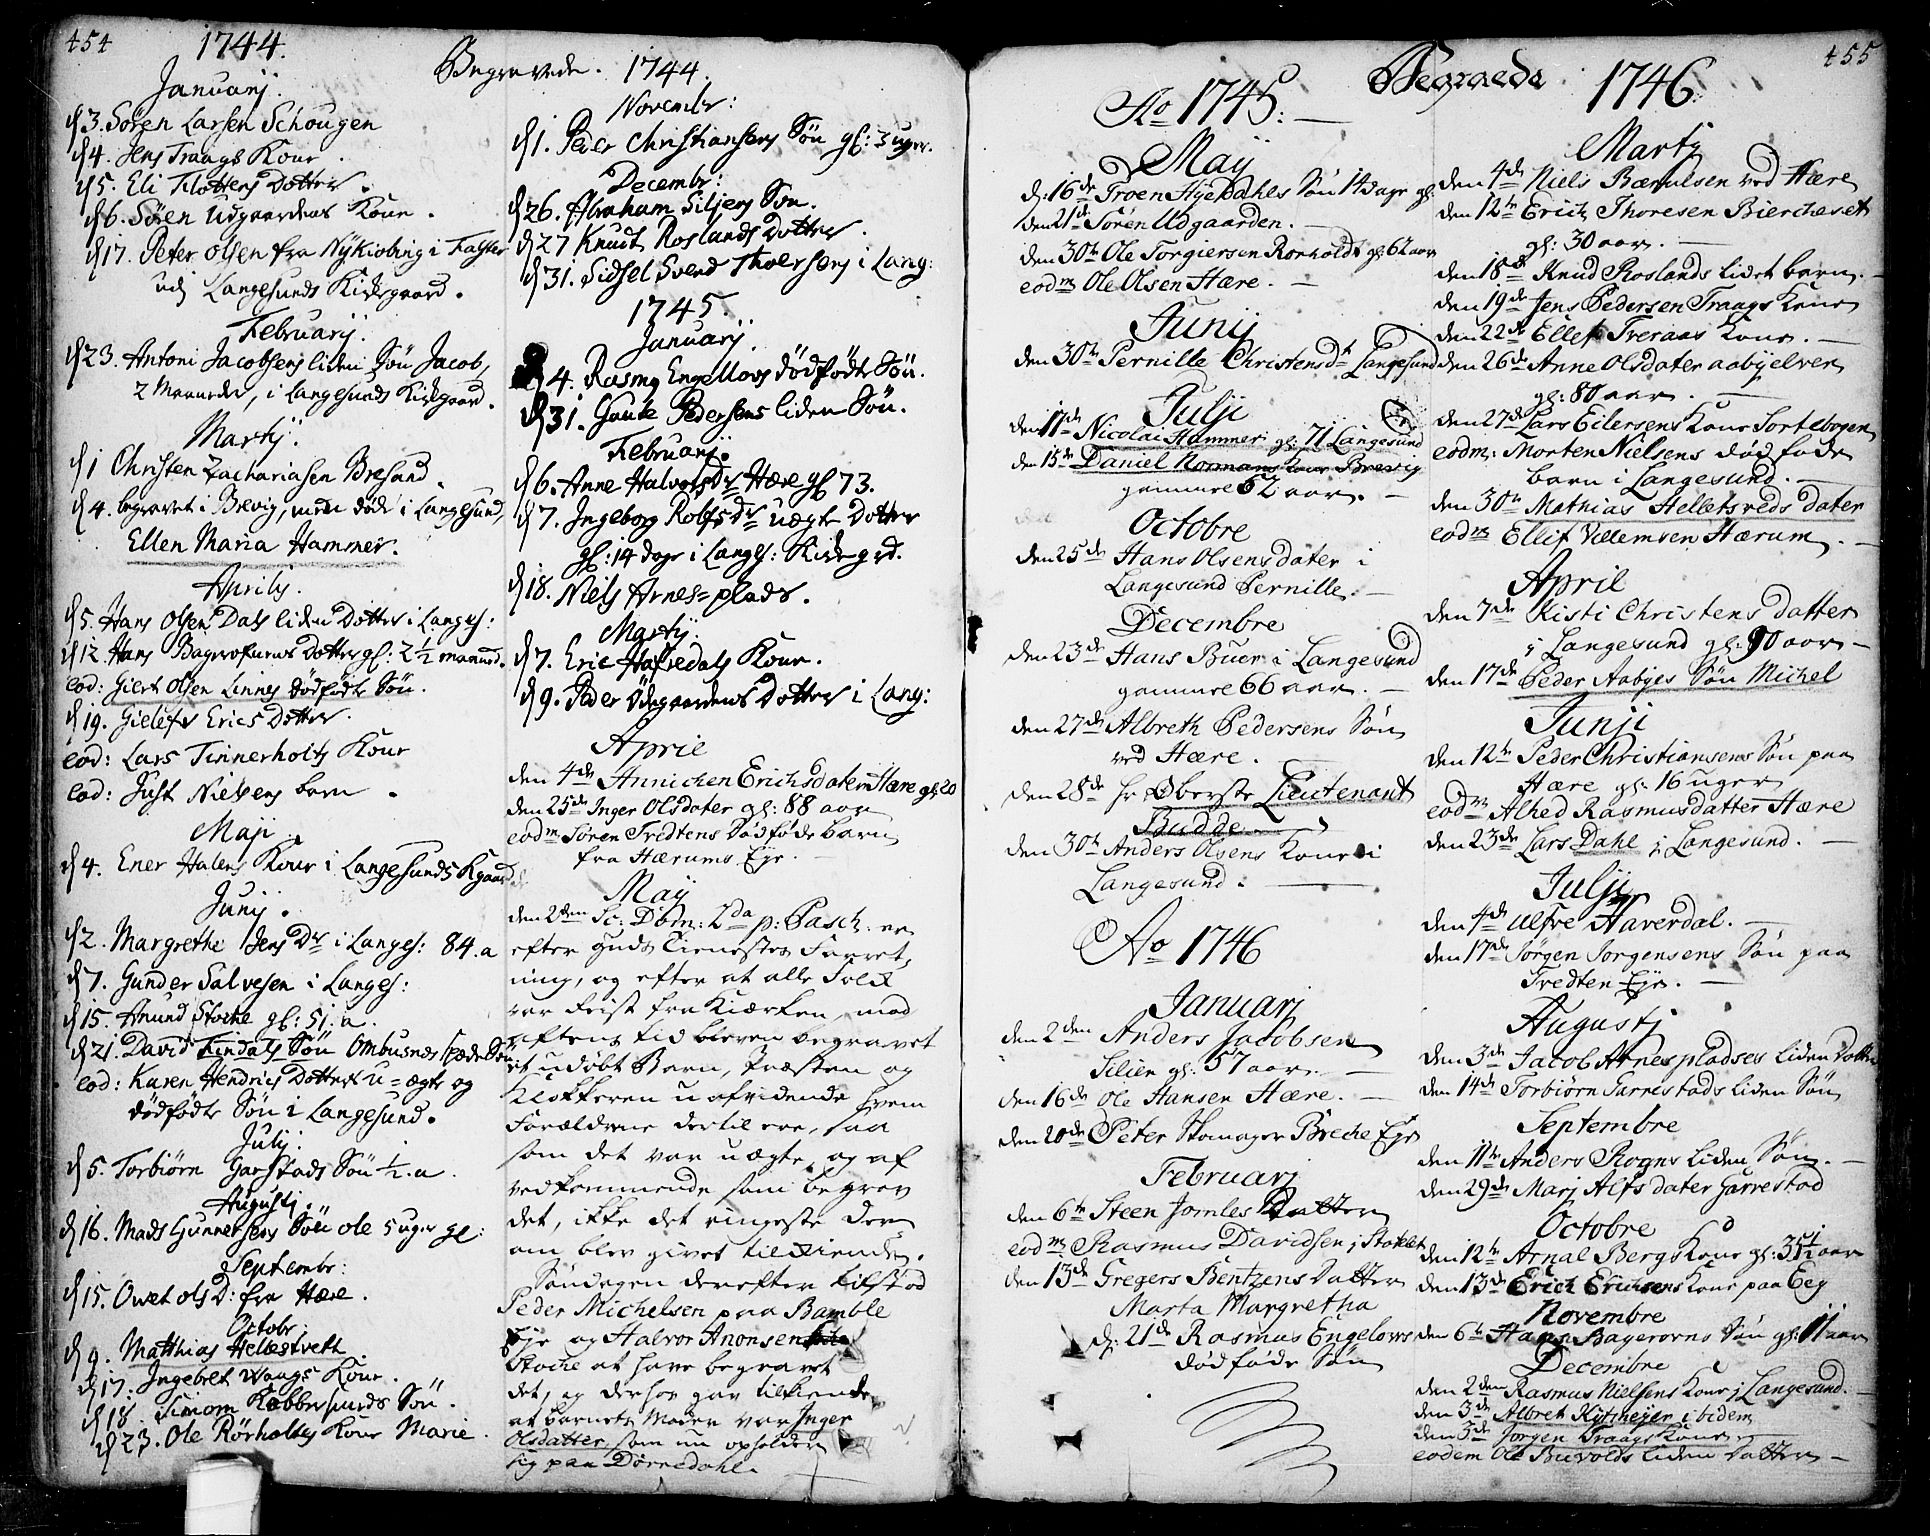 454
1744.
Begravede. 1744.
Januarij.
d 3. Søren Larsen Schougen
d 4. Jens Traags Kone.
d 5. Eli Flottens Dotter.
d 6. Søren Udgaardens Kone.
d 17. Peter Olsen fra Nykiøbing i Falster
udj Langesunds Kirkegaard.
Februarij.
d 23. Antoni Jacobsens liden Søn Jacob,
2 Maaneder, i Langesunds Kirkegaard.
Martij.
d 1 Christen Zachariasen Bresund.
d 4. begravet i Brevig, men døde i Langesund,
Ellen Maria Hammer.
Aprilis.
d 5. Hans Olsen Dals liden Dotter i Langes:
d 12 Hans Bagerofnens Dotter gl: 2½ maaned.
eod: Giert Olsen Linnes dødfødte Søn.
d 19. Gielefs Erics Dotter.
eod: Lars Tinnerholts Kone
eod: Just Nielsens barn.
Maji.
d 4. Ener Halens Kone i Langesunds Kgaard
Junij.
d 2. Margrethe Jens Dr i Langes: 84. a
d 7. Gunder Salvesen i Langes:
d 15. Anund Stocke gl: 51. a.
d 21. David Findals Søn Ombusnes spæde Søn
eod: Karen Hendrics Dotters u-ægte og
dødfødte Søn i Langesund.
Julij.
d 5. Torbiørn Garstads Søn ½. a.
Augusti.
d 16. Mads Gunnersens Søn Ole 5 uger gl:
Septembr:
d 15. Owet Ols D: fra Hære.
Octobr.
d 9. Matthias Hellestveth.
d 17. Ingebret Waags Kone.
d 18. Simon Kobbersunds Søn.
d 23. Ole Rørholtes Kone Marie.
Novembr:
d 1. Peder Christiansens Søn gl: 3 uger.
Decembr:
d 26. Abraham Siljens Søn.
d 27 Knudt Roslands Dotter.
d 31. Sidsel Svend Thoersens i Lang:
1745.
Januarij.
d 4. Rasmg Engellovs dødfødte Søn.
d 31. Gaute Pedersens liden Søn.
Februarij.
d 6. Anne Halvors Dr Hære gl 73.
d 7. Ingeborg Rolfs Dr uægte Dotter
gl: 14 dage i Langes: Kirkegrd.
d 18. Niels Arnes-plads.
Martij.
d 7. Eric Hafredals Kone.
d 9. Peder Ødegaardens Dotter i Lang:
April
den 4de Annichen Erichsdater Hære gl 20
den 25de Inger Olsdater gl: 88 aar
eodm Søren Tredtens dødføde barn
fra Hærums Eje.
Maij
den 2den Sc: Dom: 2da p: Pasch. er
efter Guds Tienestes Forret,
ning, og efter at alle Folk
var reist fra Kiærken, mod
aftens tid bleven begravet
et udøbt Barn, Præsten og
Klokkeren uafvidende hvem
Forældrene dertil ere, saa
som det var uægte, og af
vedkommende som begrov
det, ikke det ringeste der
om blev givet tilkiende.
Søndagen derefter tilstod
Peder Michelsen paa Bamble
Eje og Halvor Anonsen
Stocke at have begravet
det, og derhos gav tilkiende
at barnets Moder var Inger
Olsdatter som nu opholder
sig paa Dørredahl.
Begravede 1746.
455
Ao 1745:
Maij
d: 16de Troen Hyedahles Søn 14 dage gl
den 21de Søren Udgaarden.
den 30te Ole Torgiersen Rørholdt gl: 62 aar
eodm Ole Olsen Hære.
Junij
den 30te Pernille Christensdt Langesund
Julij
den 11te Nicolai Hammer gl: 71 Langesund
den 15de Daniel Normans Kone Brevig
gammel 52 aar.
Octobre
den 25de Hans Olsens dater i
Langesund Pernille.
Decembre
den 23de Hans Buer i Langesund
gammel 66 aar.
den 27de Albreth Pedersens Søn
ved Hære.
den 28de Hr Oberste Lieutenant
Budde
den 30te Anders Olsens Kone i
Langesund.
Ao 1746
Januarj
den 2den Anders Jacobsen
Silien gl: 57 aar.
den 16de Ole Hansen Hære.
den 20de Peter Skomager Breche Eje
Februarj
den 6te Steen Jomles Datter
eodm Rasmus Davidsen i Stoklet
den 13de Gregers Bentzens datter
Marta Margretha
d: 21de Rasmus Engelows
dødføde Søn
Martj
den 4de Niels Bærulsen ved Hære
den 12te Erich Thoresen Bierckeset
gl: 30 aar.
den 18de Knud Roslands lidet barn.
den 19de Jens Pedersen Traags Kone
den 22de Ellef Treraas Kone.
den 26de Anne Olsdater aabyelven
gl: 80 aar.
den 27de Lars Eilersens Kone Sortebogen
eodm: Morten Nielsens dødføde
barn i Langesund.
den 30te Mathias Helletsveds dater
eodm Ellif Villemsen Hærum.
April
den 7de Kisti Christens datter
i Langesund gl: 90 aar
den 17de Peder Aabyes Søn Michel
Junji
den 12te Peder Christiansens Søn paa
Hære gl: 16 uger
eodm Alhed Rasmusdatter Hære
den 23de Lars Dahl i Langesund.
Julji
den 4de Ulfre Haverdal.
den 17de Jørgen Jorgensens Søn paa
Tredten Eje.
Augustj
den 3de Jacob Arnespladses liden datter
den 14de Torbiørn Jarrestads liden Søn
Septembre
den 11te Anders Rogns liden Søn.
den 29de Marj Alfsdater Garrestad
Octobre
den 12te Arnal Bergs Kone gl: 35½ aar
den 13de Erich Erichsens Kone paa Eeg
Novembre
den 6te Hans Bagerovns Søn gl: 11 aar
Decembre
den 2den Rasmus Nielsens Kone i Langesund.
den 3de Albret Kitmejer ibidem
den 3de Jørgen Traags Kone
eodem Ole Buvolds liden datter